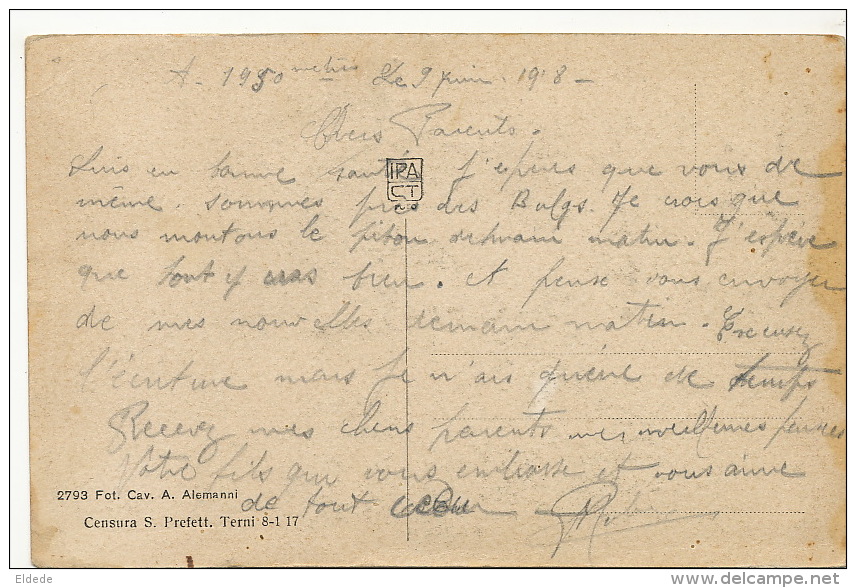 A - 1950 mètres Le 9 juin 1918 -
Chers Parents.
Suis en bonne santé J'espère que vous de
même. sommes près des Bulgs. Je crois que
nous montons le piton demain matin. J'espère
que tout y ira bien. et pense vous envoyer
de mes nouvelles demain matin. Excusez
l'écriture mais je n'ais guère de temps
Recevez mes chers parents mes meilleures pensées
Votre fils qui vous embrasse et vous aime
de tout cœur
IPA
CT
2793 Fot. Cav. A. Alemanni
Censura S. Prefett. Terni 8-1 17
Eldede
delcampe.net